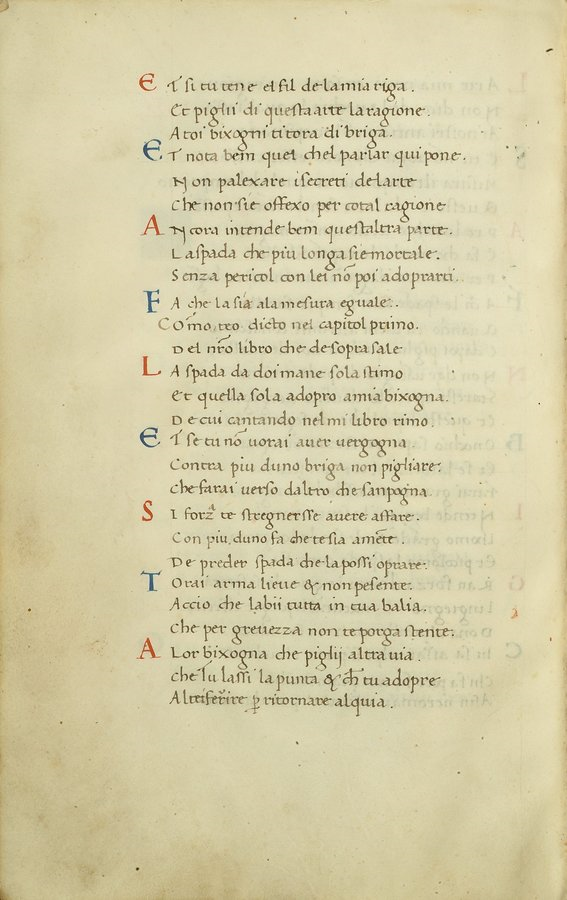 E T si tu tene el fil de la mia riga .
Et piglii di questa arte la ragione .
A toi bixogni ti tora di briga .
E T nota bem quel chel parlar qui pone .
Non palexare i secreti de larte
Che non sie offexo per cotal cagione
A Ncora intende bem questaltra parte .
La spada che piu longa sie mortale .
Senza pericol con lei nō poi adoprarti .
F A che la sia ala mesura eguale .
Como , teo dicto nel capitol primo .
Del nr̄o libro che de sopra sale
L A spada da doi mane sola stimo
Et quella sola adopro a mia bixogna .
De cui cantando nel mi libro rimo .
E T se tu nō vorai aver vergogna .
Contra piu duno briga non pigliare .
Che farai verso daltro che sanpogna
S I forza te stregnersse avere affare .
Con piu , duno fa che te sia amēte .
De preder spada che la possi oprare .
T Orai arma lieve & non pesente .
Accio che labii tutta in tua balia .
Che per grevezza non te porga stente .
A Lor bixogna che piglij altra via .
Che tu lassi la punta & ch̄ tu adopre
Altri ferire ꝑ ritornare al quia .